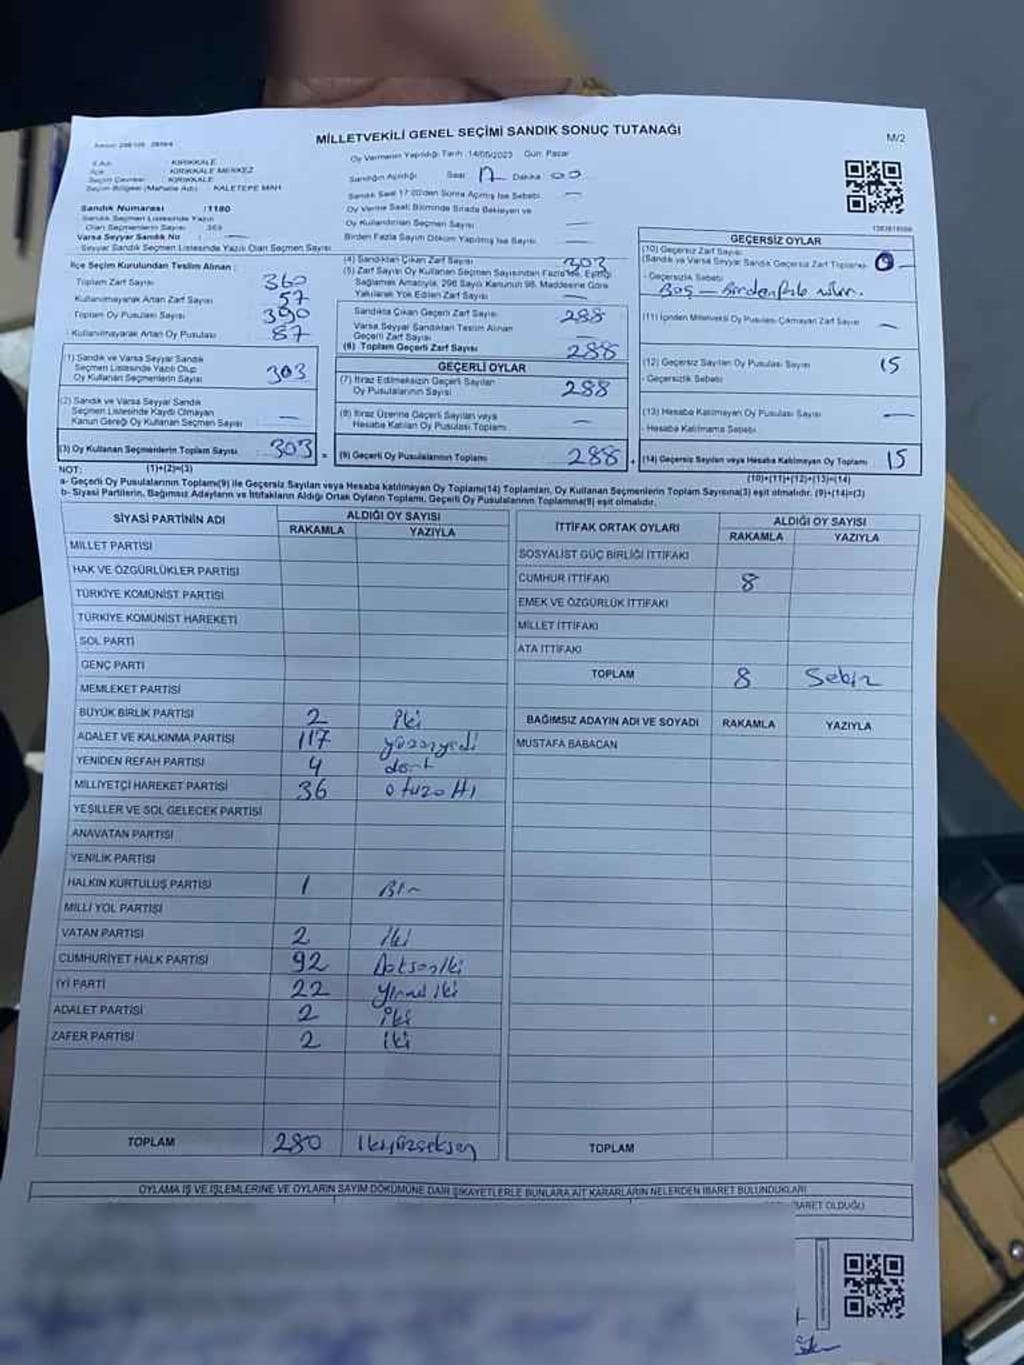 MİLLETVEKİLİ GENEL SEÇİMİ SANDIK SONUÇ TUTANAĞI
M/2
Oy Vermenin Yapıldığı Tarih :14/05/2023 Gün: Pazar
KIRIKKALE
KIRIKKALE MERKEZ
KIRIKKALE
Seçim Bölgesi (Mahalle Adı) : KALETEPE MAH
Sandığın Açıldığı Saat 17 Dakika 00
Sandık Saat 17:00'den Sonra Açılmış İse Sebebi —
Oy Verme Saati Bitiminde Sırada Bekleyen ve
Oy Kullandırılan Seçmen Sayısı —
Birden Fazla Sayım Döküm Yapılmış İse Sayısı —
Sandık Numarası :1180
Sandık Seçmen Listesinde Yazılı
Olan Seçmenlerin Sayısı
Varsa Seyyar Sandık No : —
Seyyar Sandık Seçmen Listesinde Yazılı Olan Seçmen Sayısı
İlçe Seçim Kurulundan Teslim Alınan :
Toplam Zarf Sayısı 360
Kullanılmayarak Artan Zarf Sayısı 57
Toplam Oy Pusulası Sayısı 390
- Kullanılmayarak Artan Oy Pusulası 87
(1) Sandık ve Varsa Seyyar Sandık
Seçmen Listesinde Yazılı Olup
Oy Kullanan Seçmenlerin Sayısı 303
(2) Sandık ve Varsa Seyyar Sandık
Seçmen Listesinde Kaydı Olmayan
Kanun Gereği Oy Kullanan Seçmen Sayısı —
(3) Oy Kullanan Seçmenlerin Toplam Sayısı 303 =
(4) Sandıktan Çıkan Zarf Sayısı 303
(5) Zarf Sayısı Oy Kullanan Seçmen Sayısından Fazla İse, Eşitliği
Sağlamak Amacıyla, 298 Sayılı Kanunun 98. Maddesine Göre
Yakılarak Yok Edilen Zarf Sayısı —
Sandıkta Çıkan Geçerli Zarf Sayısı 288
Varsa Seyyar Sandıktan Teslim Alınan
Geçerli Zarf Sayısı —
(6) Toplam Geçerli Zarf Sayısı 288
GEÇERLİ OYLAR
(7) İtiraz Edilmeksizin Geçerli Sayılan
Oy Pusulalarının Sayısı 288
(8) İtiraz Üzerine Geçerli Sayılan veya
Hesaba Katılan Oy Pusulası Toplamı —
(9) Geçerli Oy Pusulalarının Toplamı 288 +
GEÇERSİZ OYLAR
(10) Geçersiz Zarf Sayısı
(Sandık ve Varsa Seyyar Sandık Geçersiz Zarf Toplamı)
- Geçersizlik Sebebi
Boş —
(11) İçinden Milletvekili Oy Pusulası Çıkmayan Zarf Sayısı —
(12) Geçersiz Sayılan Oy Pusulası Sayısı 15
- Geçersizlik Sebebi
(13) Hesaba Katılmayan Oy Pusulası Sayısı —
- Hesaba Katılmama Sebebi
(14) Geçersiz Sayılan veya Hesaba Katılmayan Oy Toplamı 15
NOT: (1)+(2)=(3)
(10)+(11)+(12)+(13)=(14)
a- Geçerli Oy Pusulalarının Toplamı(9) ile Geçersiz Sayılan veya Hesaba Katılmayan Oy Toplamı(14) Toplamları, Oy Kullanan Seçmenlerin Toplam Sayısına(3) eşit olmalıdır. (9)+(14)=(3)
b- Siyasi Partilerin, Bağımsız Adayların ve İttifakların Aldığı Ortak Oyların Toplamı, Geçerli Oy Pusulalarının Toplamına(9) eşit olmalıdır.
SİYASİ PARTİNİN ADI
ALDIĞI OY SAYISI
RAKAMLA YAZIYLA
MİLLET PARTİSİ
HAK VE ÖZGÜRLÜKLER PARTİSİ
TÜRKİYE KOMÜNİST PARTİSİ
TÜRKİYE KOMÜNİST HAREKETİ
SOL PARTİ
GENÇ PARTİ
MEMLEKET PARTİSİ
BÜYÜK BİRLİK PARTİSİ 2 iki
ADALET VE KALKINMA PARTİSİ 117 yüzonyedi
YENİDEN REFAH PARTİSİ 4 dört
MİLLİYETÇİ HAREKET PARTİSİ 36 otuzaltı
YEŞİLLER VE SOL GELECEK PARTİSİ
ANAVATAN PARTİSİ
YENİLİK PARTİSİ
HALKIN KURTULUŞ PARTİSİ 1 Bir
MİLLİ YOL PARTİSİ
VATAN PARTİSİ 2 iki
CUMHURİYET HALK PARTİSİ 92 Doksaniki
İYİ PARTİ 22 yirmiiki
ADALET PARTİSİ 2 iki
ZAFER PARTİSİ 2 iki
TOPLAM 280 ikiyüzseksen
İTTİFAK ORTAK OYLARI
ALDIĞI OY SAYISI
RAKAMLA YAZIYLA
SOSYALİST GÜÇ BİRLİĞİ İTTİFAKI
CUMHUR İTTİFAKI 8
EMEK VE ÖZGÜRLÜK İTTİFAKI
MİLLET İTTİFAKI
ATA İTTİFAKI
TOPLAM 8 Sekiz
BAĞIMSIZ ADAYIN ADI VE SOYADI RAKAMLA YAZIYLA
MUSTAFA BABACAN
TOPLAM
OYLAMA İŞ VE İŞLEMLERİNE VE OYLARIN SAYIM DÖKÜMÜNE DAİR ŞİKAYETLERLE BUNLARA AİT KARARLARIN NELERDEN İBARET BULUNDUKLARI
İBARET OLDUĞU